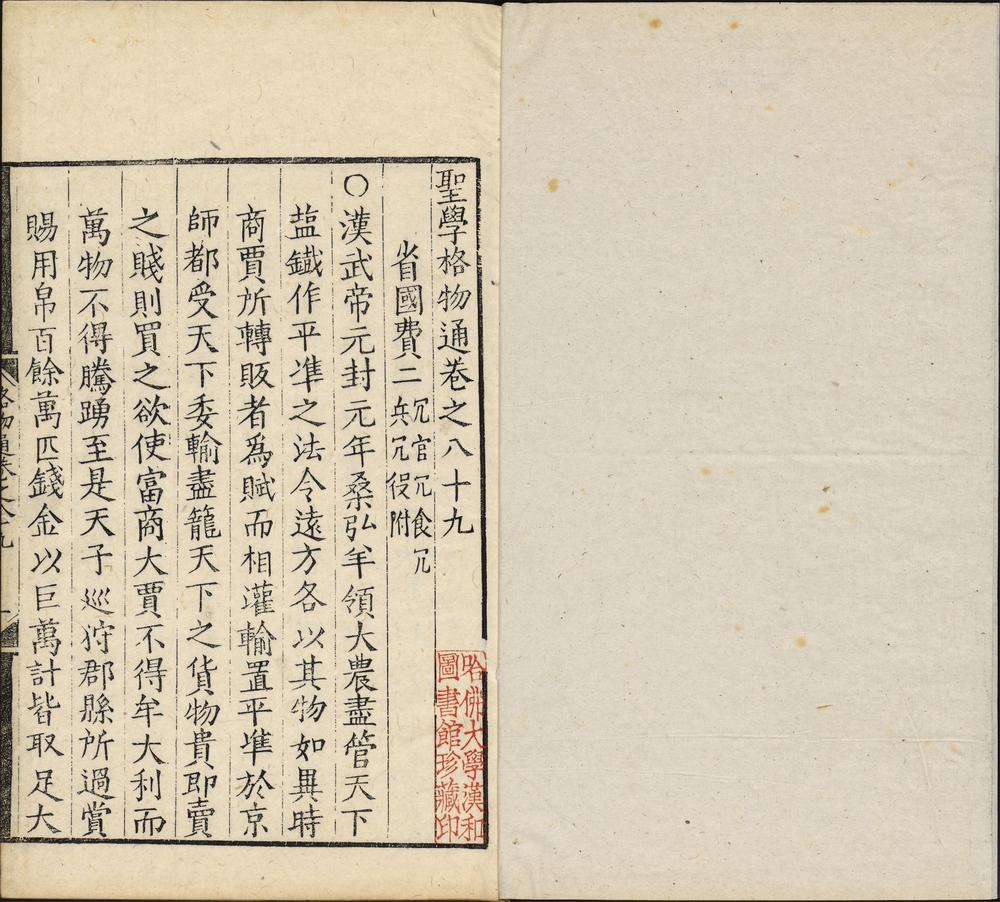 聖學格物通卷之八十九
省國費二 冗官冗食冗
兵冗役附
○漢武帝元封元年桑弘羊領大農盡管天下
盐鐵作平準之法令遠方各以其物如異時
商賈所轉販者為賦而相灌輸置平準於京
師都受天下委輸盡籠天下之貨物貴即賣
之賤則買之欲使富商大賈不得牟大利而
萬物不得騰踴至是天子巡狩郡縣所過賞
賜用帛百餘萬匹錢金以巨萬計皆取足大
格物通卷之八十九
一
哈佛大學漢和
圖書館珍藏印